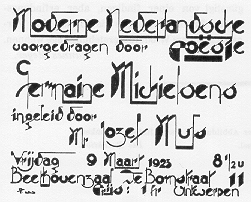 Moderne Nederlandsche
voorgedragen door Poëzie
Germaine Michielsens
ingeleid door
Mr Jozef Muls
Vrijdag 9 Maart 1923 8 1/2 u
Beethovenzaal De Bomstraat 11
Antwerpen